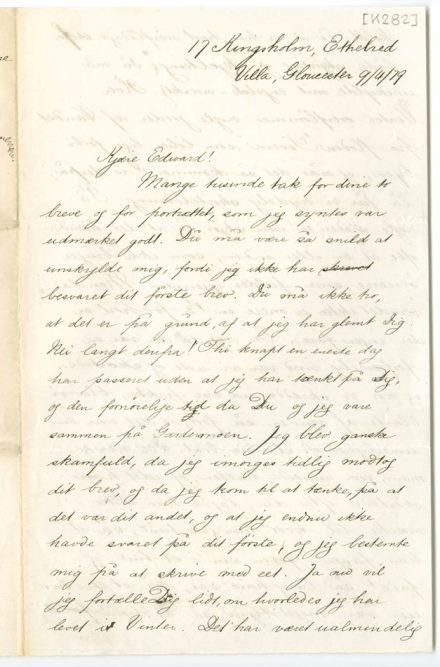 [K282]
17 Kingsholm, Ethelred
Villa, Gloucester 9/4/79
Kjære Edward!
Mange tusinde tak for dine to
breve og for portrættet, som jeg syntes var
udmærket godt. Du må være så snild at
undskylde mig, fordi jeg ikke har skrevet
besvaret dit første brev. Du må ikke tro,
at det er på grund af at jeg har glemt Dig.
Nei langt derfra! Thi knapt en eneste dag
har passeret uden at jeg har tænkt på Dig,
og den fornøielige tid da Du og jeg vare
sammen på Gardermoen. Jeg blev ganske
skamfuld, da jeg imorges tidlig modtog
dit brev, og da jeg kom til at tænke, på at
det var dit andet, og at jeg endnu ikke
havde svaret på dit første, og jeg bestemte
mig på at skrive med eet. Ja nu vil
jeg fortælle Dig lidt, om hvorledes jeg har
levet i Vinter. Det har været ualmindelig